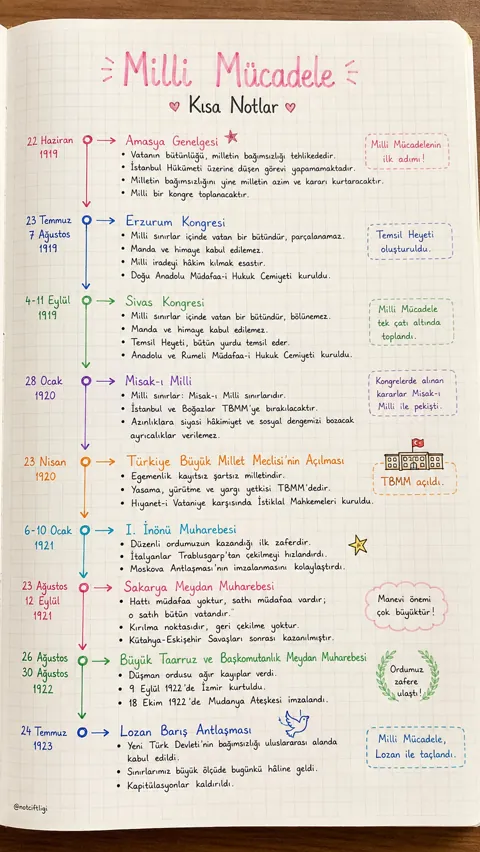 Milli Mücadele
Kısa Notlar
22 Haziran
1919
Amasya Genelgesi
• Vatanın bütünlüğü, milletin bağımsızlığı tehlikededir.
• İstanbul Hükümeti üzerine düşen görevi yapamamaktadır.
• Milletin bağımsızlığını yine milletin azim ve kararı kurtaracaktır.
• Milli bir kongre toplanacaktır.
Milli Mücadelenin
ilk adımı!
23 Temmuz
7 Ağustos
1919
Erzurum Kongresi
• Milli sınırlar içinde vatan bir bütündür, parçalanamaz.
• Manda ve himaye kabul edilemez.
• Milli iradeyi hâkim kılmak esastır.
• Doğu Anadolu Müdafaa-i Hukuk Cemiyeti kuruldu.
Temsil Heyeti
oluşturuldu.
4-11 Eylül
1919
Sivas Kongresi
• Milli sınırlar içinde vatan bir bütündür, bölünemez.
• Manda ve himaye kabul edilemez.
• Temsil Heyeti, bütün yurdu temsil eder.
• Anadolu ve Rumeli Müdafaa-i Hukuk Cemiyeti kuruldu.
Milli Mücadele
tek çatı altında
toplandı.
28 Ocak
1920
Misak-ı Milli
• Milli sınırlar: Misak-ı Milli sınırlarıdır.
• İstanbul ve Boğazlar TBMM'ye bırakılacaktır.
• Azınlıklara siyasi hâkimiyet ve sosyal dengemizi bozacak
ayrıcalıklar verilemez.
Kongrelerde alınan
kararlar Misak-ı
Milli ile pekişti.
23 Nisan
1920
Türkiye Büyük Millet Meclisi'nin Açılması
• Egemenlik kayıtsız şartsız milletindir.
• Yasama, yürütme ve yargı yetkisi TBMM'dedir.
• Hıyanet-i Vataniye karşısında İstiklal Mahkemeleri kuruldu.
TBMM açıldı.
6-10 Ocak
1921
I. İnönü Muharebesi
• Düzenli ordumuzun kazandığı ilk zaferdir.
• İtalyanlar Trablusgarp'tan çekilmeyi hızlandırdı.
• Moskova Antlaşması'nın imzalanmasını kolaylaştırdı.
23 Ağustos
12 Eylül
1921
Sakarya Meydan Muharebesi
• Hattı müdafaa yoktur, sathı müdafaa vardır;
o satıh bütün vatandır.
• Kırılma noktasıdır, geri çekilme yoktur.
• Kütahya-Eskişehir Savaşları sonrası kazanılmıştır.
Manevi önemi
çok büyüktür!
26 Ağustos
30 Ağustos
1922
Büyük Taarruz ve Başkomutanlık Meydan Muharebesi
• Düşman ordusu ağır kayıplar verdi.
• 9 Eylül 1922'de İzmir kurtuldu.
• 18 Ekim 1922'de Mudanya Ateşkesi imzalandı.
Ordumuz
zafere
ulaştı!
24 Temmuz
1923
Lozan Barış Antlaşması
• Yeni Türk Devleti'nin bağımsızlığı uluslararası alanda
kabul edildi.
• Sınırlarımız büyük ölçüde bugünkü hâline geldi.
• Kapitülasyonlar kaldırıldı.
Milli Mücadele,
Lozan ile taçlandı.
@notciftligi